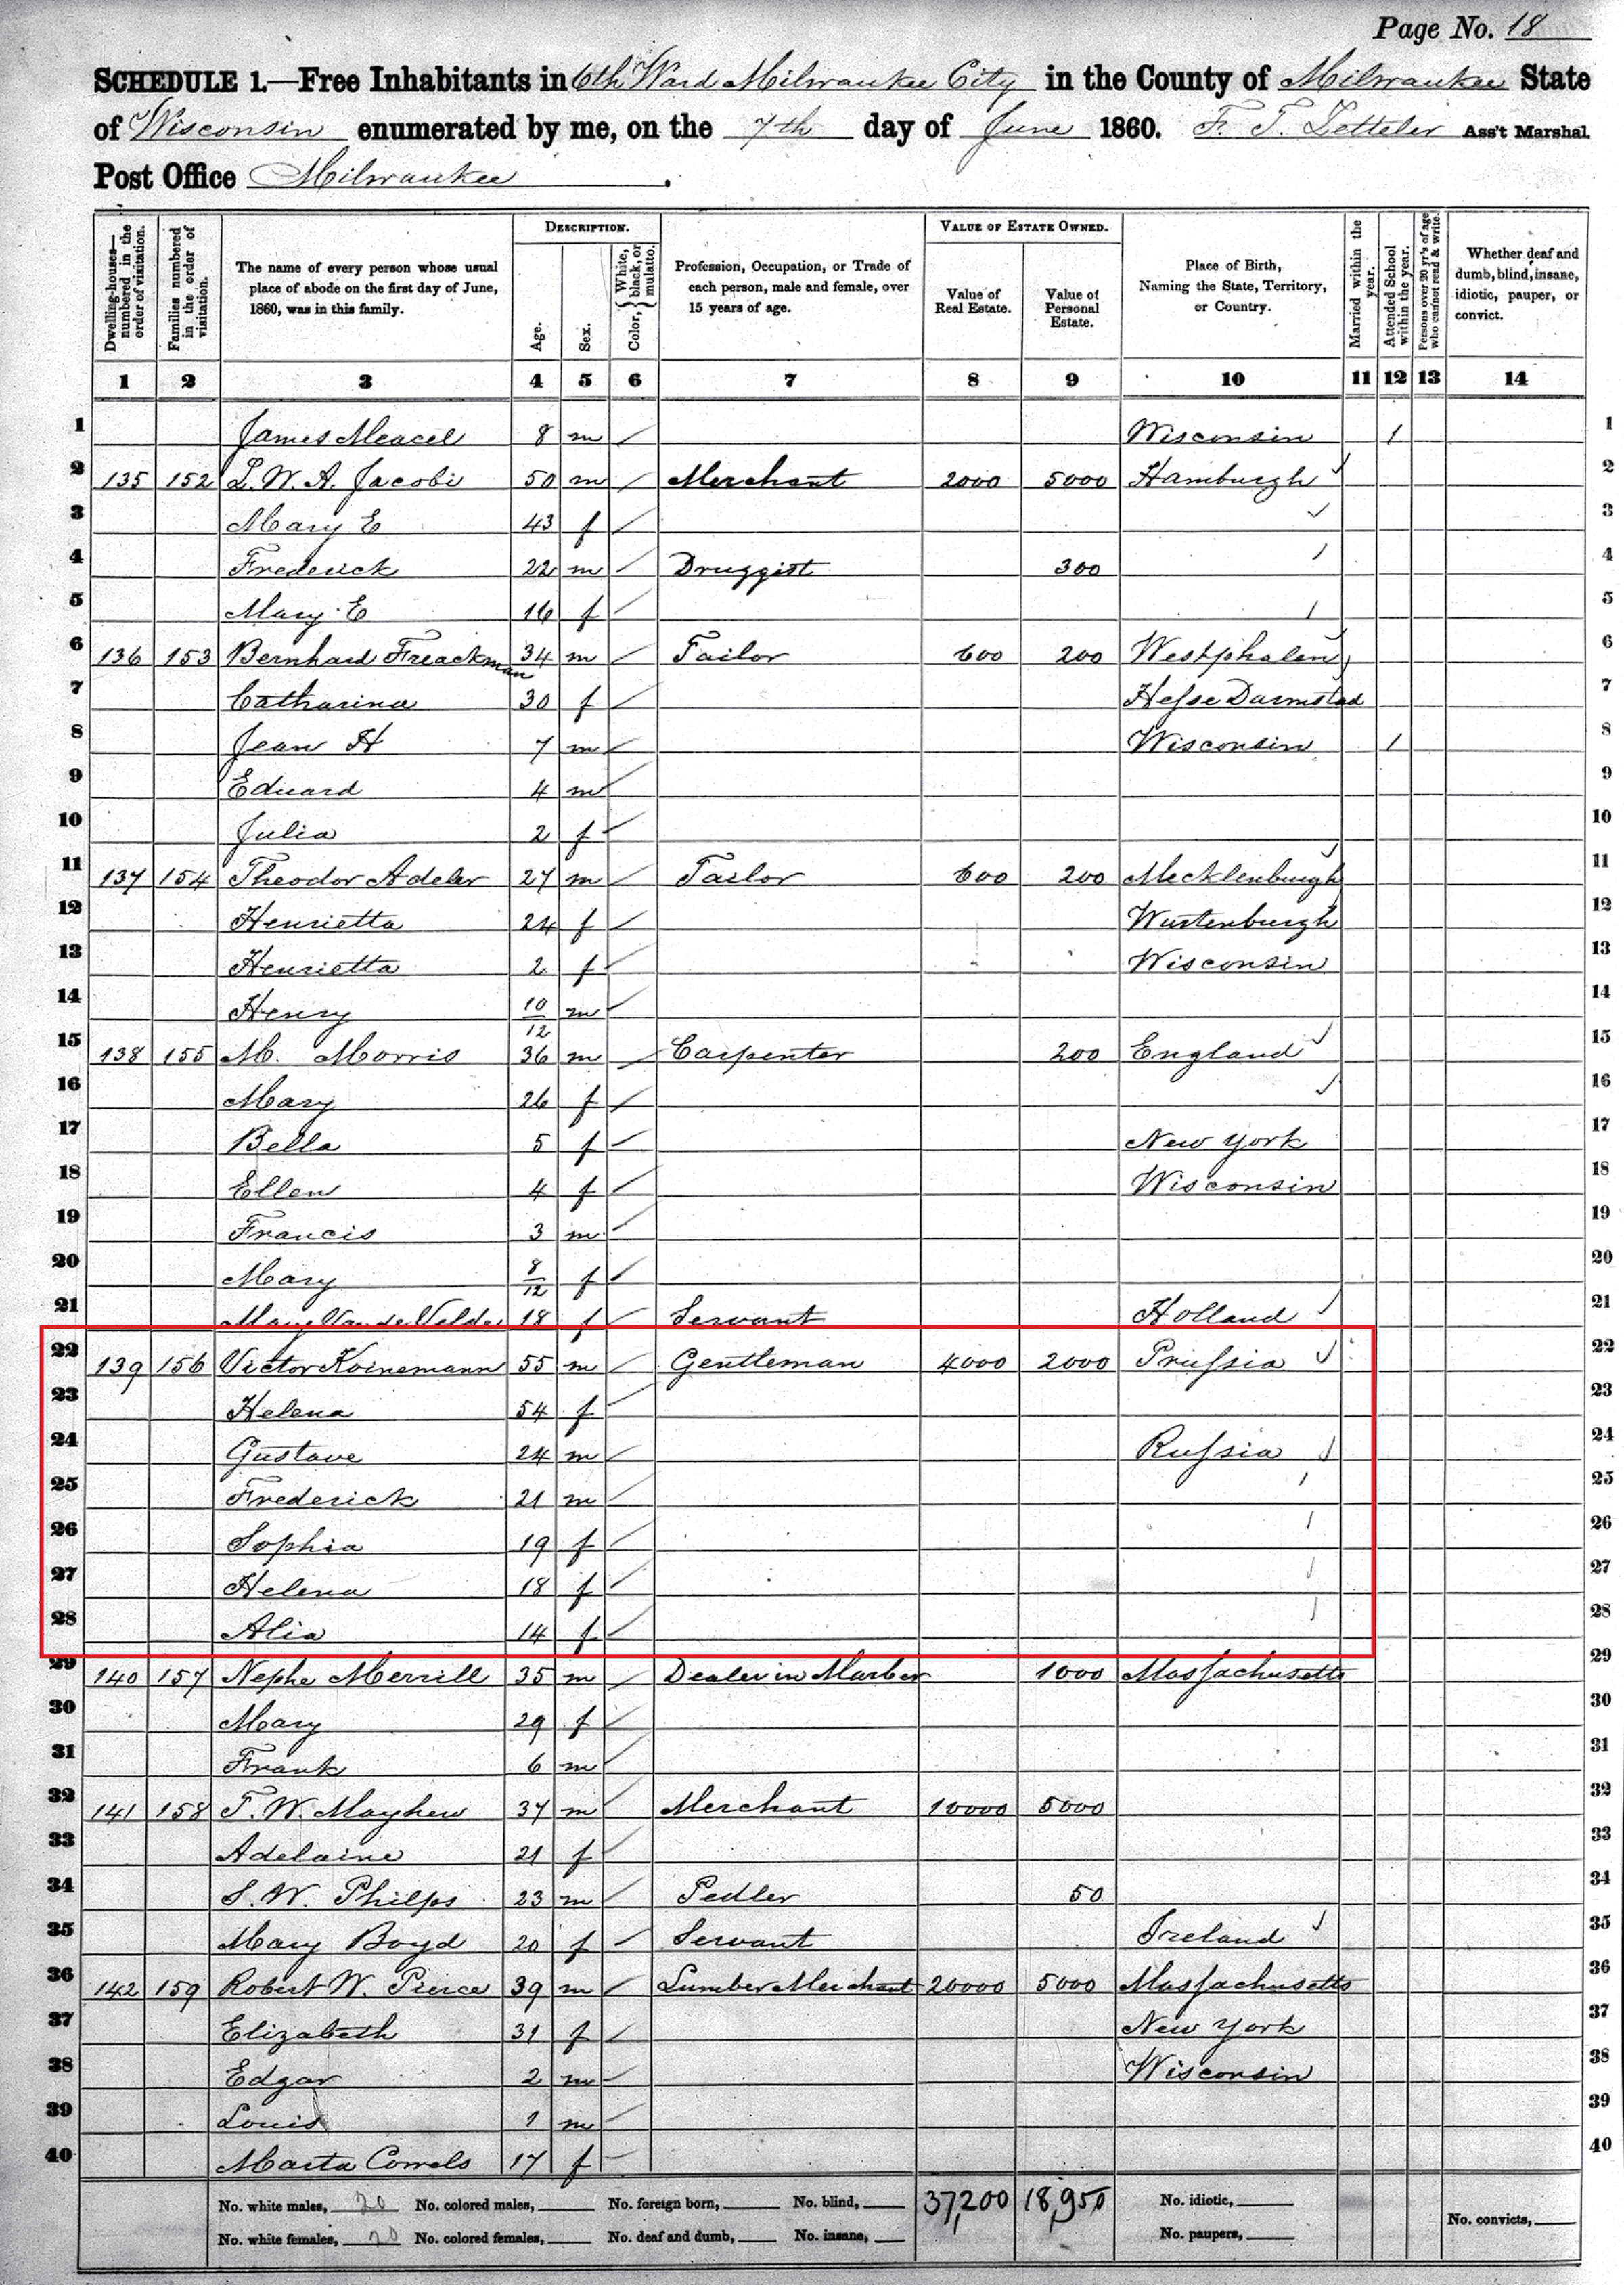 Page No. 18
SCHEDULE 1.—Free Inhabitants in 6th Ward Milwaukee City in the County of Milwaukee State
of Wisconsin enumerated by me, on the 7th day of June 1860. F. T. Zetteler Ass't Marshal.
Post Office Milwaukee.
Dwelling-houses—numbered in the order of visitation. Families numbered in the order of visitation. The name of every person whose usual place of abode on the first day of June, 1860, was in this family. DESCRIPTION. Age. Sex. Color, White, black, or mulatto. Profession, Occupation, or Trade of each person, male and female, over 15 years of age. VALUE OF ESTATE OWNED. Value of Real Estate. Value of Personal Estate. Place of Birth, Naming the State, Territory, or Country. Married within the year. Attended School within the year. Persons over 20 y'rs of age who cannot read & write. Whether deaf and dumb, blind, insane, idiotic, pauper, or convict.
1 2 3 4 5 6 7 8 9 10 11 12 13 14
1 James 8 m / Wisconsin / 1
2 135 152 L. W. A. Jacobi 50 m / Merchant 2000 5000 Hamburgh ✓ 2
3 Mary E 43 f / ✓ 3
4 Frederick 22 m / Druggist 300 / 4
5 Mary E 16 f / / 5
6 136 153 Bernhard Freackman 34 m / Tailor 600 200 Westphalen ✓ 6
7 Catharina 30 f / Hesse Darmstad 7
8 Jean H 7 m / Wisconsin / 8
9 Eduard 4 m / 9
10 Julia 2 f / 10
11 137 154 Theodor Adeler 27 m / Tailor 600 200 Mecklenburgh ✓ 11
12 Henrietta 24 f / Wurtenburgh 12
13 Henrietta 2 f / Wisconsin 13
14 Henry 10/12 m / 14
15 138 155 M. Morris 36 m / Carpenter 200 England ✓ 15
16 Mary 26 f / ✓ 16
17 Bella 5 f / New York 17
18 Ellen 4 f / Wisconsin 18
19 Francis 3 m / 19
20 Mary 8/12 f / 20
21 Mary Van de Velde 18 f / Servant Holland ✓ 21
22 139 156 Victor Koinemann 55 m / Gentleman 4000 2000 Prussia ✓ 22
23 Helena 54 f / 23
24 Gustave 24 m / Russia ✓ 24
25 Frederick 21 m / / 25
26 Sophia 19 f / / 26
27 Helena 18 f / / 27
28 Alia 14 f / / 28
29 140 157 Nephe Merrill 35 m / Dealer in Marber 1000 Massachusetts 29
30 Mary 29 f / 30
31 Frank 6 m / 31
32 141 158 T. W. Mayhew 37 m / Merchant 10000 5000 32
33 Adelaine 21 f / 33
34 S. W. Philps 23 m / Pedler 50 34
35 Mary Boyd 20 f / Servant Ireland ✓ 35
36 142 159 Robert W. Pierce 39 m / Lumber Merchant 20000 5000 Massachusetts 36
37 Elizabeth 31 f / New York 37
38 Edgar 2 m / Wisconsin 38
39 Louis 1 m / 39
40 Marta 17 f / 40
No. white males, 20 No. colored males, No. foreign born, No. blind, 37,200 18,950 No. idiotic,
No. white females, 20 No. colored females, No. deaf and dumb, No. insane, No. paupers, No. convicts,